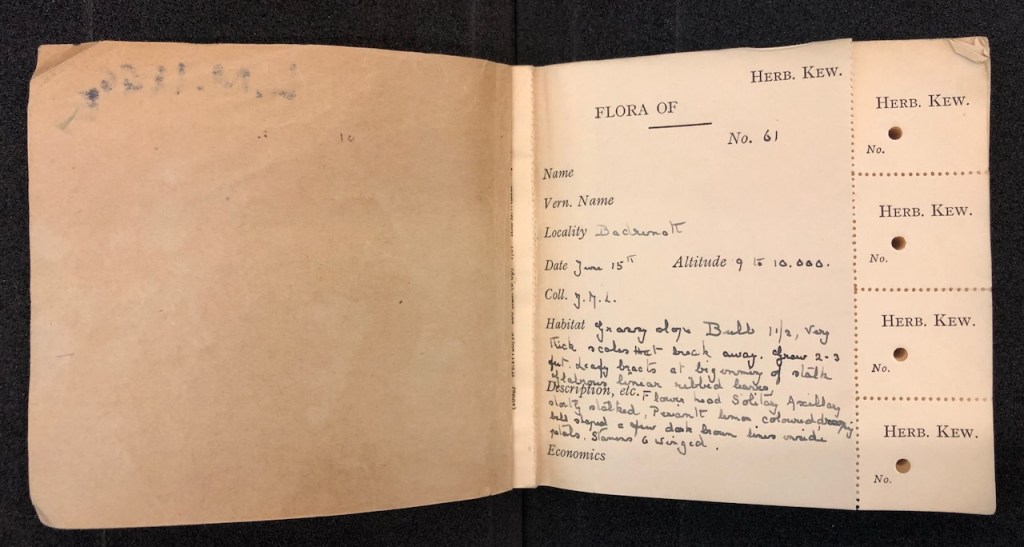 HERB. KEW.
FLORA OF
No. 61
Name
Vern. Name
Locality Badrinath
Date June 15th Altitude 9 to 10.000.
Coll.
Habitat Grassy slope Bulb 1 1/2, Very
thick scales that break away. Grew 2-3
feet. Leafy bracts at beginning of stalk
Glabrous linear ribbed leaves
Description, etc. Flower head Solitary Axillary
stalked, Perianth lemon coloured, drooping
bell shaped a few dark brown lines inside
petals. Stamens 6 winged.
Economics
HERB. KEW.
No.
HERB. KEW.
No.
HERB. KEW.
No.
HERB. KEW.
No.